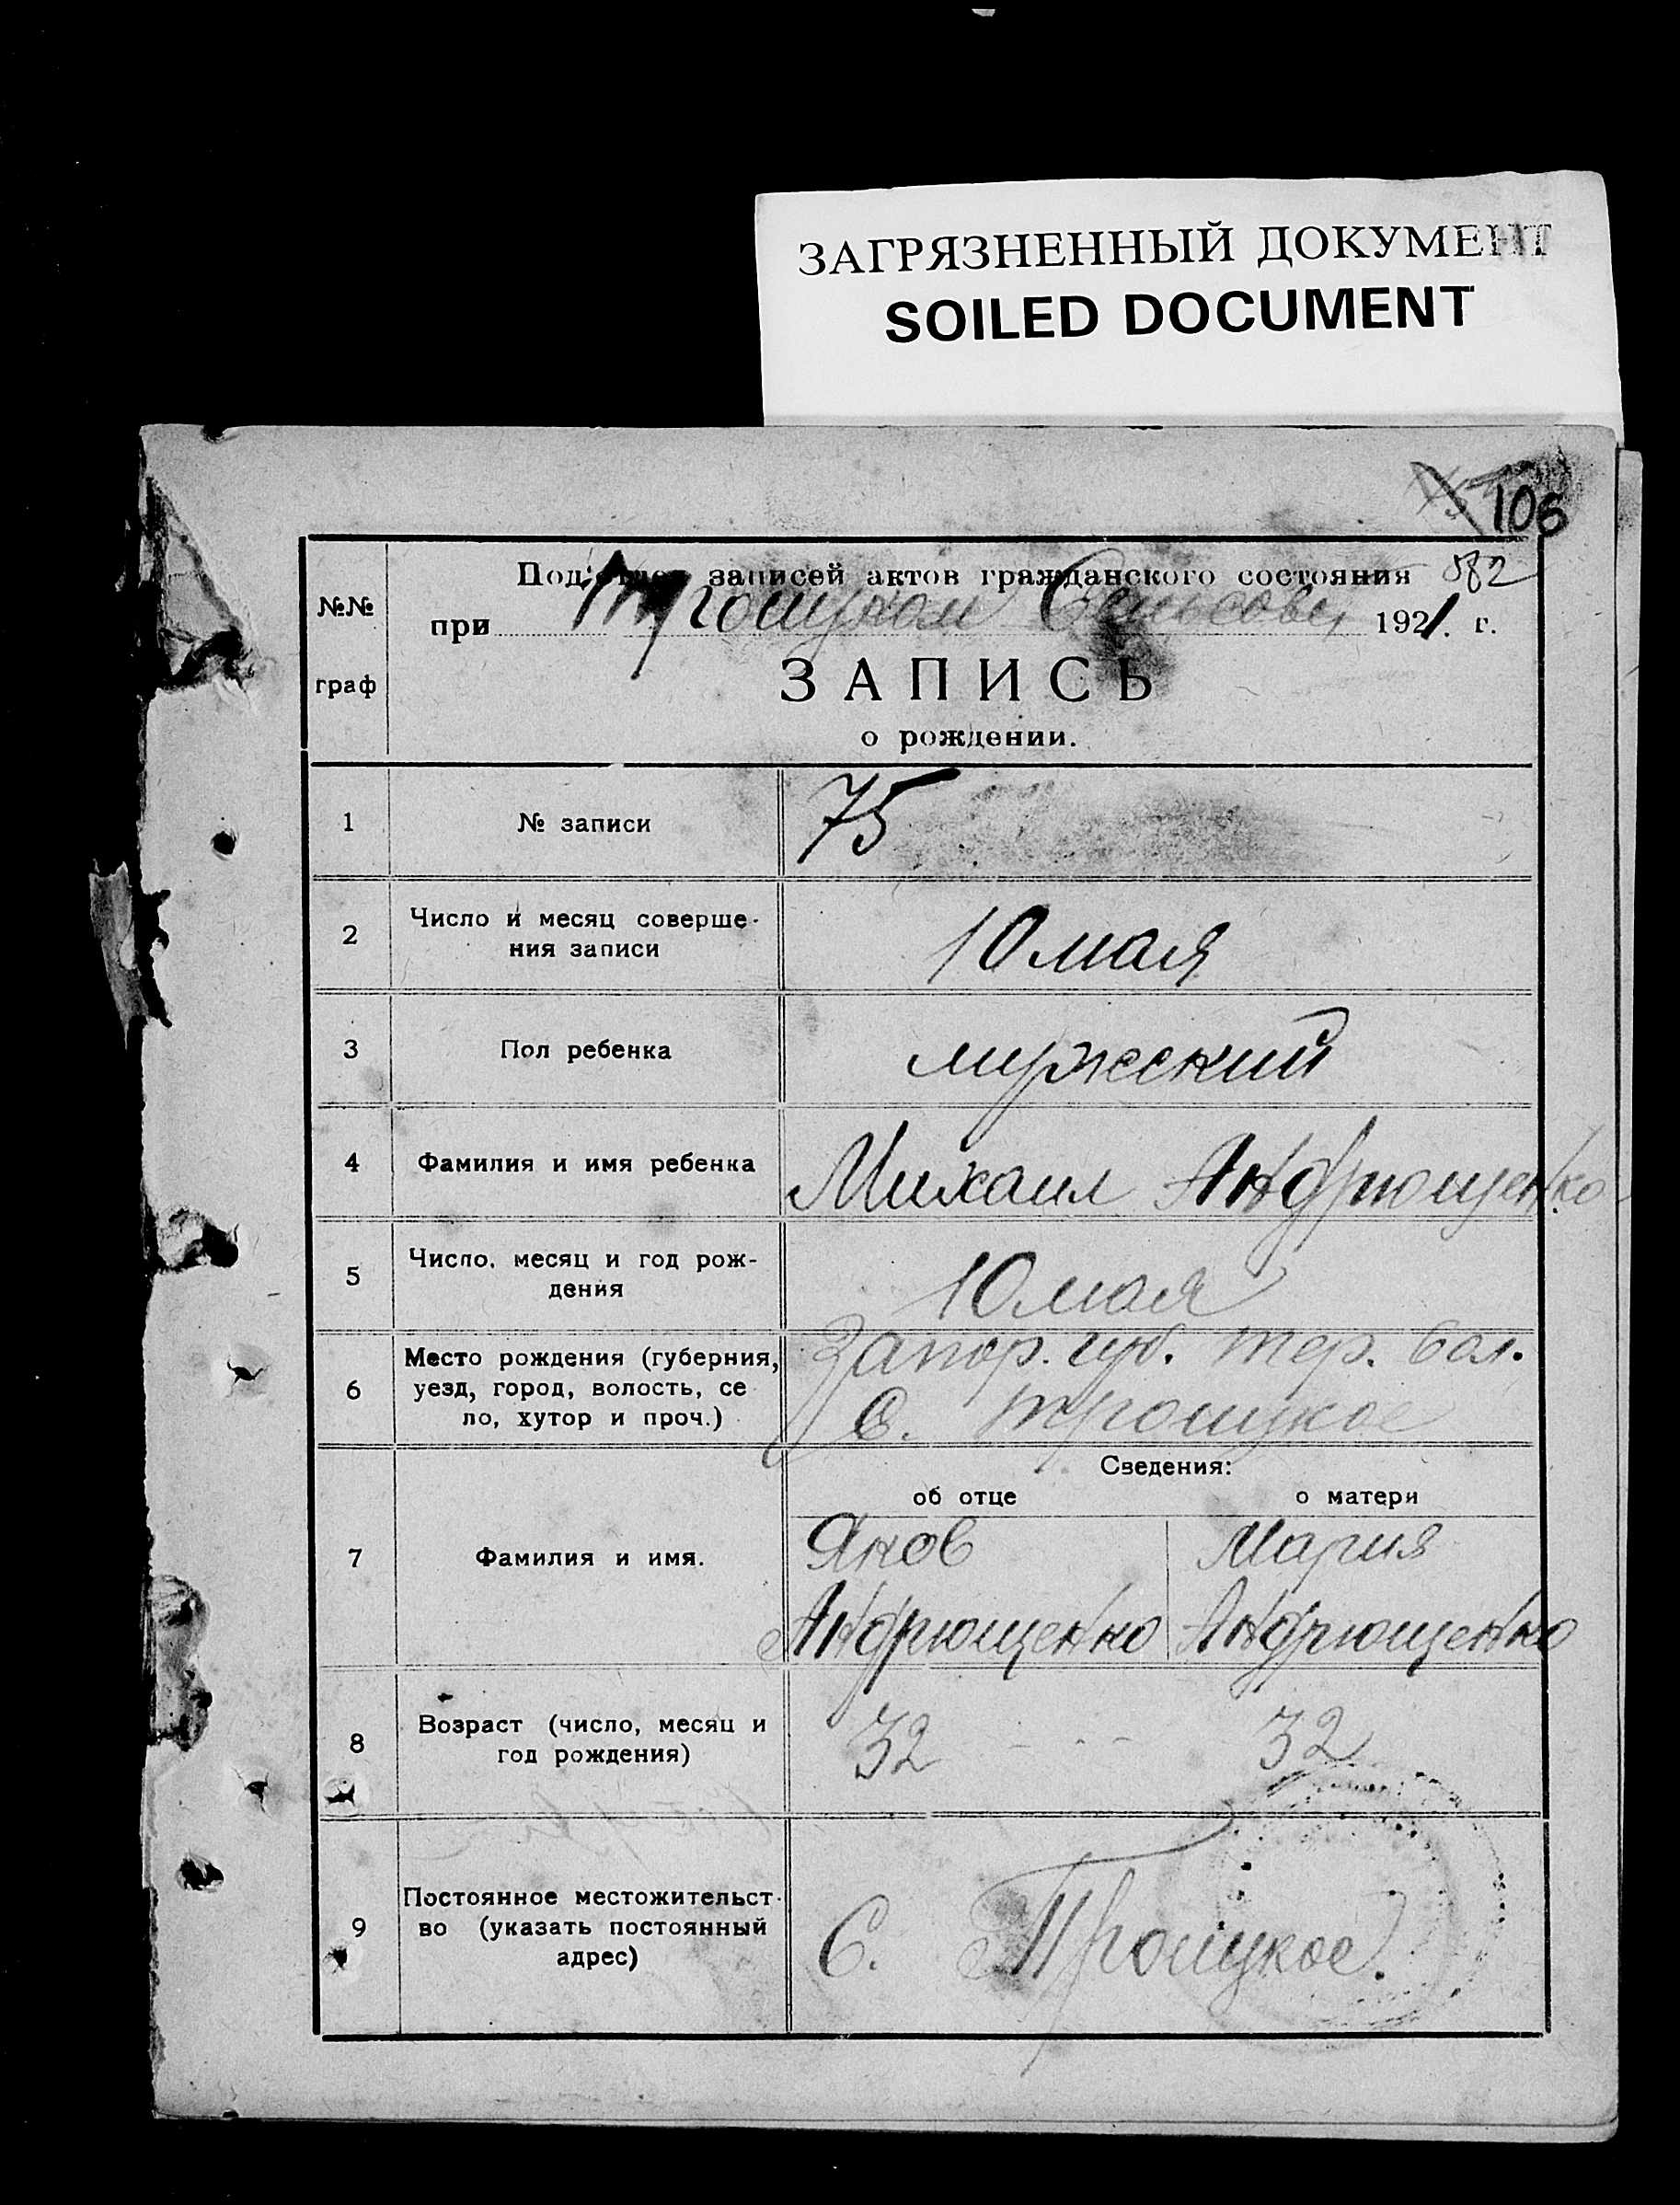 ЗАГРЯЗНЕННЫЙ ДОКУМЕНТ
SOILED DOCUMENT
106
№№ граф
Под'отдел записей актов гражданского состояния 582
при Троицком Сельсовет 1921. г.
ЗАПИСЬ
о рождении.
1 № записи 75
2 Число и месяц соверше-
ния записи 10 мая
3 Пол ребенка мужеский
4 Фамилия и имя ребенка Михаил Андрющенко
5 Число, месяц и год рож-
дения 10 мая
6 Место рождения (губерния, Запор. губ. тер. вол.
уезд, город, волость, се
ло, хутор и проч.) С. троицкое
Сведения:
об отце о матери
7 Фамилия и имя. Яков Мария
Андрющенко Андрющенко
8 Возраст (число, месяц и
год рождения) 32 32
9 Постоянное местожительст-
во (указать постоянный
адрес) С. Троицкое.